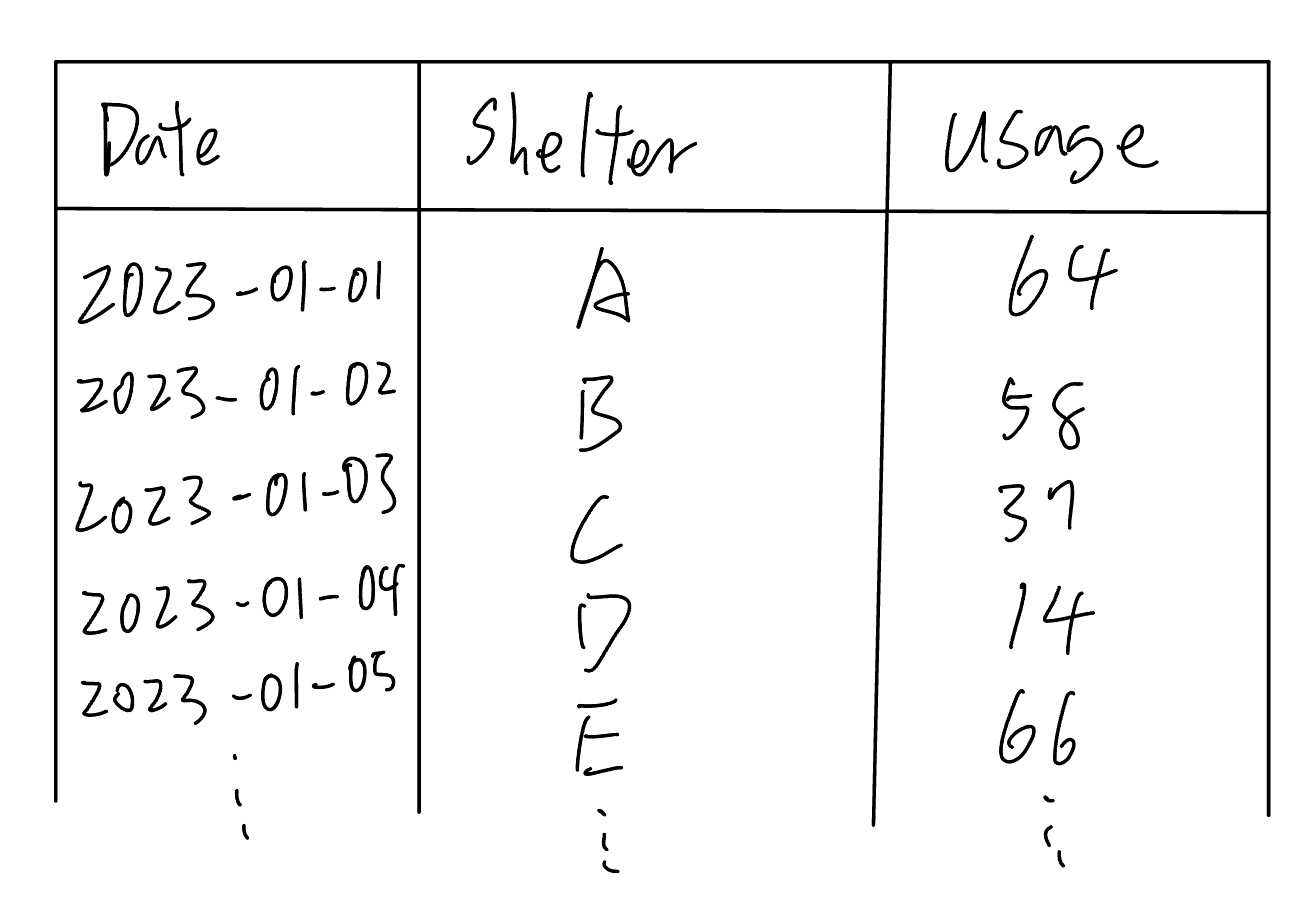 Date Shelter Usage
2023-01-01 A 64
2023-01-02 B 58
2023-01-03 C 37
2023-01-04 D 14
2023-01-05 E 66